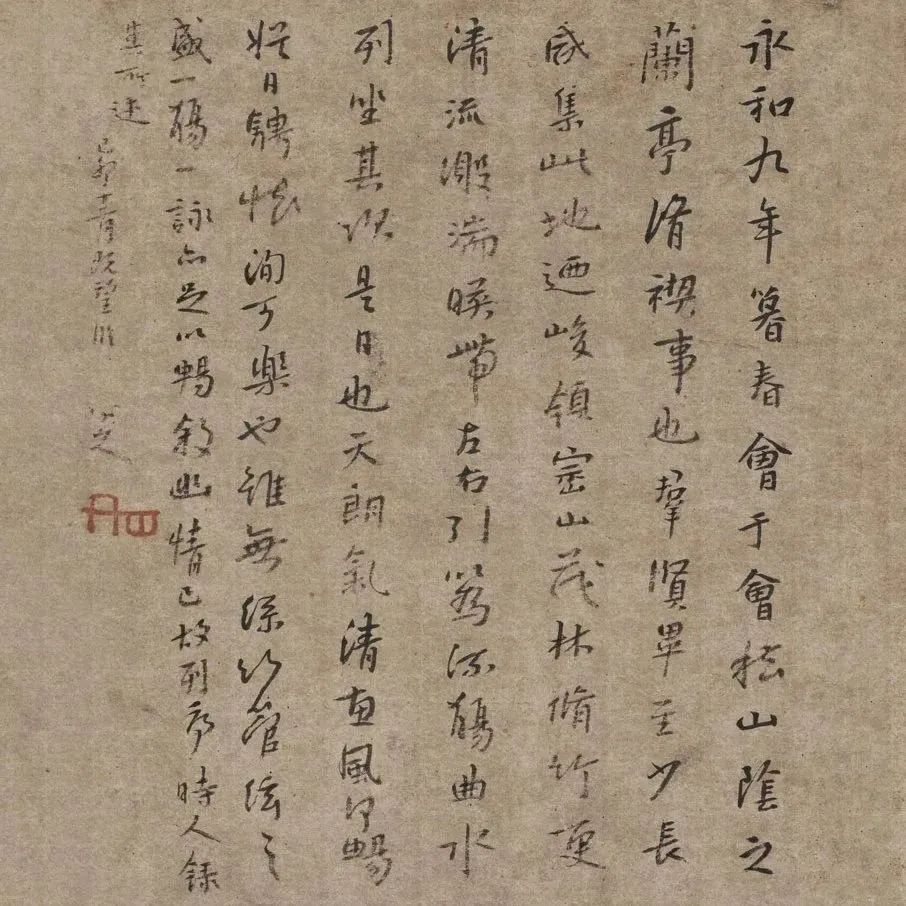 永和九年暮春會于會稽山陰之
蘭亭脩禊事也羣賢畢至少長
咸集此地迺峻領崇山茂林脩竹更
清流激湍暎帶左右引為流觴曲水
列坐其次是日也天朗氣清惠風和暢
娛目騁懷洵可樂也雖無絲竹管絃之
盛一觴一詠亦足以暢敘幽情已故列序時人錄
其所述
己卯 既望
八大山人